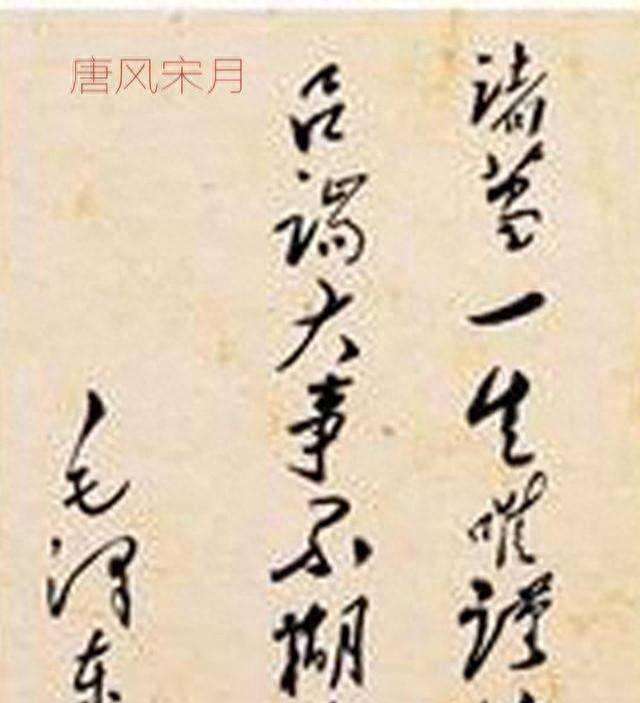 唐风宋月
诸葛一生唯谨
吕端大事不糊
毛泽东